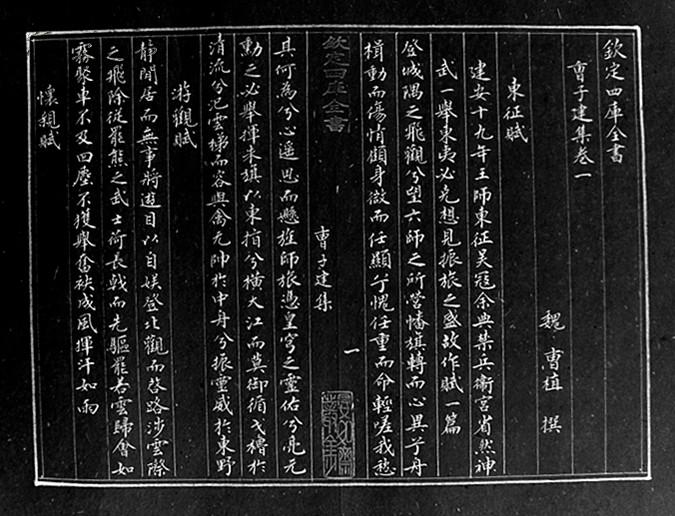 欽定四庫全書
曹子建集卷一
魏 曹植 撰
東征賦
建安十九年王師東征吳冦余典禁兵衛宫省然神
武一舉東夷必克想見振旅之盛故作賦一篇
登城隅之飛觀兮望六師之所營幡旗轉而心異兮舟
楫動而傷情顧身微而任顯兮愧任重而命輕嗟我愁
欽定四庫全書
曹子建集
一
其何為兮心遥思而懸旌師旅憑皇穹之靈佑兮亮元
勳之必舉揮朱旗以東指兮横大江而莫御循戈櫓於
清流兮汜雲梯而容與禽元帥於中舟兮振靈威於東野
游觀賦
静閒居而無事將遊目以自娱登北觀而啓路涉雲際
之飛除從羆熊之武士荷長戟而先驅罷若雲歸會如
霧聚車不及囘塵不獲舉奮袂成風揮汗如雨
懷親賦